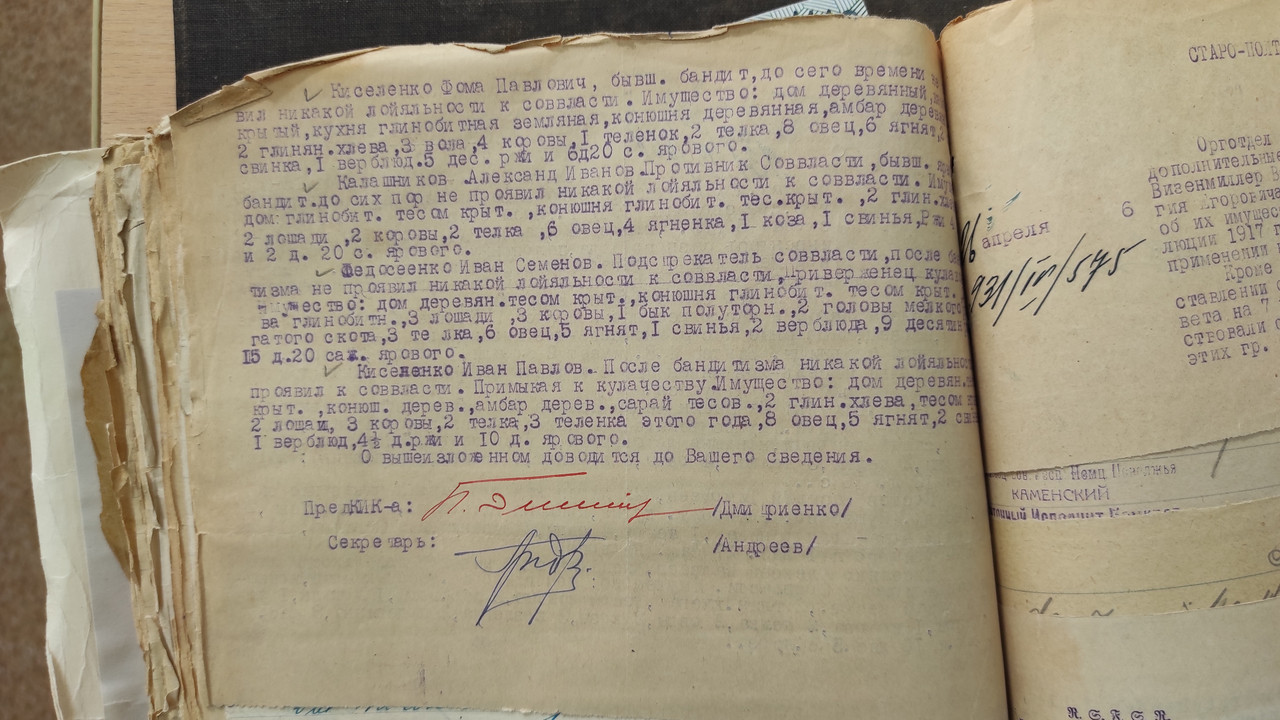 Киселенко Фома Павлович, бывш. бандит,до сего времени
вил никакой лойяльности к соввласти. Имущество: дом деревянный,
крытый,кухня глинобитная земляная,конюшня деревянная,амбар
2 глинян.хлева,3 вола,4 коровы,1 теленок,2 телка,8 овец,6 ягнят,
свинка,1 верблюд.5 дес. ржи и 6д20 с. ярового.
Калашников Александ Иванов.Противник Соввласти,бывш.
бандит.до сих пор не проявил никакой лойяльности к соввласти.
дом глинобит. тесом крыт. ,конюшня глинобит. тес.крыт. ,2 глин.
2 лошади ,2 коровы,2 телка ,6 овец,4 ягненка,1 коза,1 свинья,Ржи
и 2 д. 20 с. ярового.
Федосеенко Иван Семенов. Подстрекатель соввласти,после
тизма не проявил никакой лойяльности к соввласти,приверженец
имущество: дом деревян.тесом крыт.,конюшня глинобит. тесом крыт.
ва глинобитн.,3 лошади ,3 коровы,1 бык полуторн.,2 головы мелкого
гатого скота,3 те лка,6 овец,5 ягнят,1 свинья,2 верблюда,9 десятин
15 д.20 саж. ярового.
Киселенко Иван Павлов. После бандитизма никакой
проявил к соввласти. Примыкая к кулачеству.Имущество: дом деревян.
крыт. ,конюш. дерев.,амбар дерев.,сарай тесов.,2 глин.хлева,тесом
2 лошад, 3 коровы,2 телка,3 теленка этого года,8 овец,5 ягнят,2
1 верблюд,4½ д.ржи и 10 д. ярового.
О вышеизложенном доводится до Вашего сведения.
ПредКИК-а: /Дмитриенко/
Секретарь: /Андреев/
СТАРО-ПОЛТ
апреля 6
931/IV/575
Орготдел
дополнительные
Визенмиллер
гия Егорович
об их имущес
люции 1917 г
применении
Кроме
ставлении
вета на 7
ствовали
этих гр.
Немц Поволжья
КАМЕНСКИЙ
R. S. F. S. R.